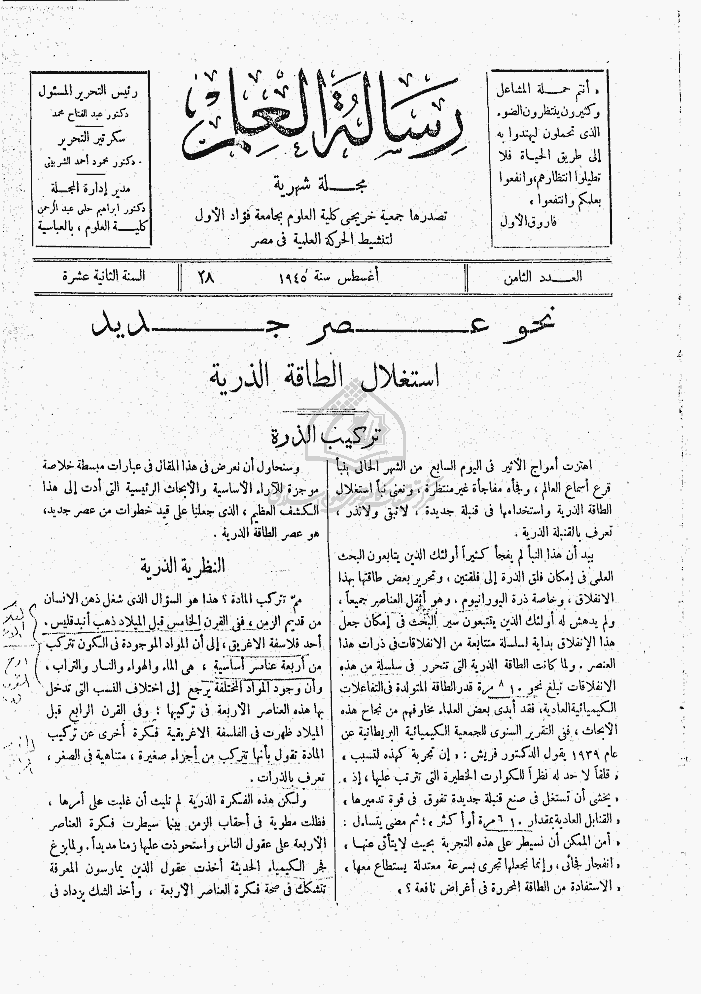 « أنتم حملة المشاعل
وكثيرون ينتظرون الضوء
الذى تحملون ليهتدوا به
إلى طريق الحياة فلا
تطيلوا انتظارهم، وانفعوا
بعلمكم وانتفعوا »
فاروق الاول
رسالة العلم
مجلة شهرية
تصدرها جمعية خريجى كلية العلوم بجامعة فؤاد الأول
لتنشيط الحركة العلمية فى مصر
رئيس التحرير المسئول
دكتور عبد الفتاح محمد
سكرتير التحرير
دكتور محمود أحمد الشربينى
مدير إدارة المجلة
دكتور ابراهيم حلمى عبد الرحمن
كلية العلوم ، بالعباسية
العدد الثامن
أغسطس سنة ١٩٤٥
٢٨
السنة الثانية عشرة
نحو عصر جديد
استغلال الطاقة الذرية
تركيب الذرة
اهتزت أمواج الأثير فى اليوم السابع من الشهر الحالى بنبأ
قرع أسماع العالم ، وفجأه مفاجأة غير منتظرة ، ونعنى نبأ استغلال
الطاقة الذرية واستخدامها فى قنبلة جديدة ، لا تبقى ولا تذر ،
تعرف بالقنبلة الذرية .
بيد أن هذا النبأ لم يفجأ كثيراً أولئك الذين يتابعون البحث
العلمى فى إمكان فلق الذرة إلى فلقتين ، وتحرير بعض طاقتها بهذا
الانفلاق ، وخاصة ذرة اليورانيوم . وهو أثقل العناصر جميعاً ،
ولم يدهش له أولئك الذين يتتبعون سير البحث فى إمكان جعل
هذا الإنفلاق بداية لسلسلة متتابعة من الانفلاقات فى ذرات هذا
العنصر . ولما كانت الطاقة الذرية التى تتحرر فى سلسلة من هذه
الانفلاقات تبلغ نحو ١٠ ٨ مرة قدر الطاقة المتولدة فى التفاعلات
الكيميائية العادية، فقد أبدى بعض العلماء مخاوفهم من نجاح هذه
الأبحاث ، ففى التقرير السنوى للجمعية الكيميائية البريطانية عن
عام ١٩٣٩ يقول الدكتور فريش : « إن تجربة كهذه لتسبب
« قلقاً لا حد له نظراً للكوارث الخطيرة التى تترتب عليها ، إذ
« يخشى أن تستغل فى صنع قنبلة جديدة تفوق فى قوة تدميرها
« القنابل العادية بمقدار ١٠ ٦ مرة أو أكثر » ؛ ثم مضى يتساءل :
« أمن الممكن أن نسيطر على هذه التجربة بحيث لا يتأتى عنها
« انفجار فجائى ، وإنما نجعلها تجرى بسرعة معتدلة يستطاع معها
« الاستفادة من الطاقة المحررة فى أغراض نافعة ؟ »
وسنحاول أن نعرض فى هذا المقال فى عبارات مبسطة خلاصة
موجزة للآراء الأساسية والأبحاث الرئيسية التى أدت إلى هذا
الكشف العظيم ، الذى جعلنا على قيد خطوات من عصر جديد،
هو عصر الطاقة الذرية .
النظرية الذرية
مم تتركب المادة ؟ هذا هو السؤال الذى شغل ذهن الانسان
من قديم الزمن ، ففى القرن الخامس قبل الميلاد ذهب أنبدقليس ،
أحد فلاسفة الاغريق ، إلى أن المواد الموجودة فى الكون تتركب
من أربعة عناصر أساسية ، هى الماء والهواء والنار والتراب ،
وأن وجود المواد المختلفة يرجع إلى اختلاف النسب التى تدخل
بها هذه العناصر الاربعة فى تركيبها ؛ وفى القرن الرابع قبل
الميلاد ظهرت فى الفلسفة الاغريقية فكرة أخرى عن تركيب
المادة تقول بأنها تتركب من أجزاء صغيرة ، متناهية فى الصغر ،
تعرف بالذرات .
ولكن هذه الفكرة الذرية لم تلبث أن غلبت على أمرها ،
فظلت مطوية فى أحقاب الزمن بينما سيطرت فكرة العناصر
الاربعة على عقول الناس واستحوذت عليها زمنا مديداً . ولما بزغ
فجر الكيمياء الحديثة أخذت عقول الذين يمارسون المعرفة
تتشكك فى صحة فكرة العناصر الاربعة ، وأخذ الشك يزداد فى